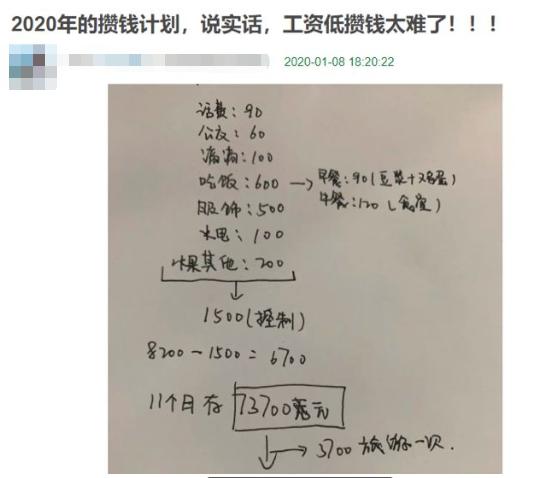 2020年的攒钱计划，说实话，工资低攒钱太难了！！！
2020-01-08 18:20:22
话费：90
公交：60
滴滴：100
吃饭：600 → 早餐：90（豆浆+鸡蛋）
午餐：120（食堂）
服饰：500
水电：100
水果其他：200
1500（控制）
8200-1500=6700
11个月存 73700元
3700 旅游一次.